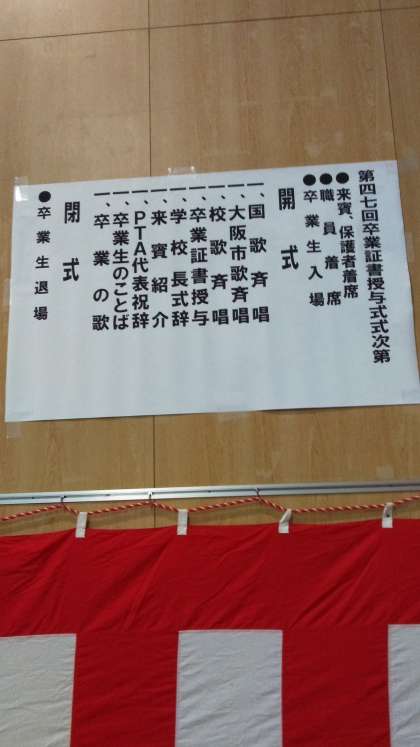 第四七回卒業証書授与式式次第
●来賓、保護者着席
●職員着席
●卒業生入場
開式
一、国歌斉唱
一、大阪市歌斉唱
一、校歌斉唱
一、卒業証書授与
一、学校長式辞
一、来賓紹介
一、PTA代表祝辞
一、卒業生のことば
一、卒業の歌
閉式
●卒業生退場